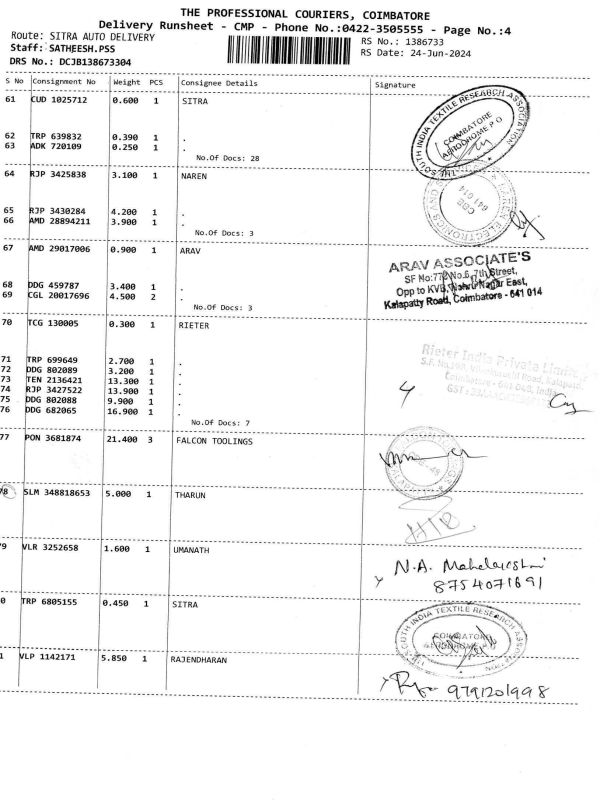 THE PROFESSIONAL COURIERS, COIMBATORE
Delivery Runsheet - CMP - Phone No.:0422-3505555 - Page No.:4
Route: SITRA AUTO DELIVERY
Staff: SATHEESH.PSS
DRS No.: DCJB138673304
RS No.: 1386733
RS Date: 24-Jun-2024
S No Consignment No Weight PCS Consignee Details Signature
61 CUD 1025712 0.600 1 SITRA
62 TRP 639832 0.390 1 .
63 ADK 720109 0.250 1 .
No.Of Docs: 28
SOUTH INDIA TEXTILE RESEARCH ASSOCIATION
COIMBATORE
AERODROME P O
64 RJP 3425838 3.100 1 NAREN
65 RJP 3430284 4.200 1 .
66 AMD 28894211 3.900 1 .
No.Of Docs: 3
CBE
641 014
67 AMD 29017006 0.900 1 ARAV
68 DDG 459787 3.400 1 .
69 CGL 20017696 4.500 2 .
No.Of Docs: 3
ARAV ASSOCIATE'S
SF No:772 No.6, 7th Street,
Opp to KVB, Nehru Nagar East,
Kalapatty Road, Coimbatore - 641 014
70 TCG 130005 0.300 1 RIETER
71 TRP 699649 2.700 1 .
72 DDG 802089 3.200 1 .
73 TEN 2136421 13.300 1 .
74 RJP 3427522 13.900 1 .
75 DDG 802088 9.900 1 .
76 DDG 682065 16.900 1 .
No.Of Docs: 7
Rieter India Private Limited
Coimbatore - 641 048, India
77 PON 3681874 21.400 3 FALCON TOOLINGS
78 SLM 348818653 5.000 1 THARUN
79 VLR 3252658 1.600 1 UMANATH
N.A. Mahalakshmi
8754071691
0 TRP 6805155 0.450 1 SITRA
SOUTH INDIA TEXTILE RESEARCH ASSOCIATION
COIMBATORE
AERODROME P O
1 VLP 1142171 5.850 1 RAJENDHARAN
9791201998